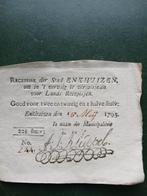 Recepisse der Stad ENKHUIZEN,
om in 't vervolg te verwisselen
voor Lands Recepissen.
Goed voor twee en twintig en t halve stuiv:
Enkhuizen den May 1795.
In naam der Municipaliteit
22½ stuiv:
No.